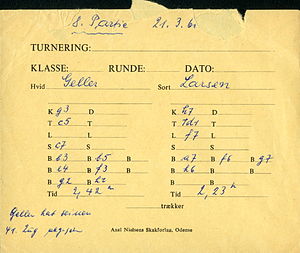 8. Partie 21.3.61
TURNERING:
KLASSE: RUNDE: DATO:
Hvid Geller Sort Larsen
K g3 D K h7 D
T c5 T T d1 T
L L L f7 L
S c7 S S S
B b3 B b5 B B a7 B f6 B g7
B e4 B f3 B B h6 B B
B g2 B h2 B B
Tid 2,42 Tid 2,23
trækker
Geller hat seinen
41. Zug
Axel Nielsens Skakforlag, Odense